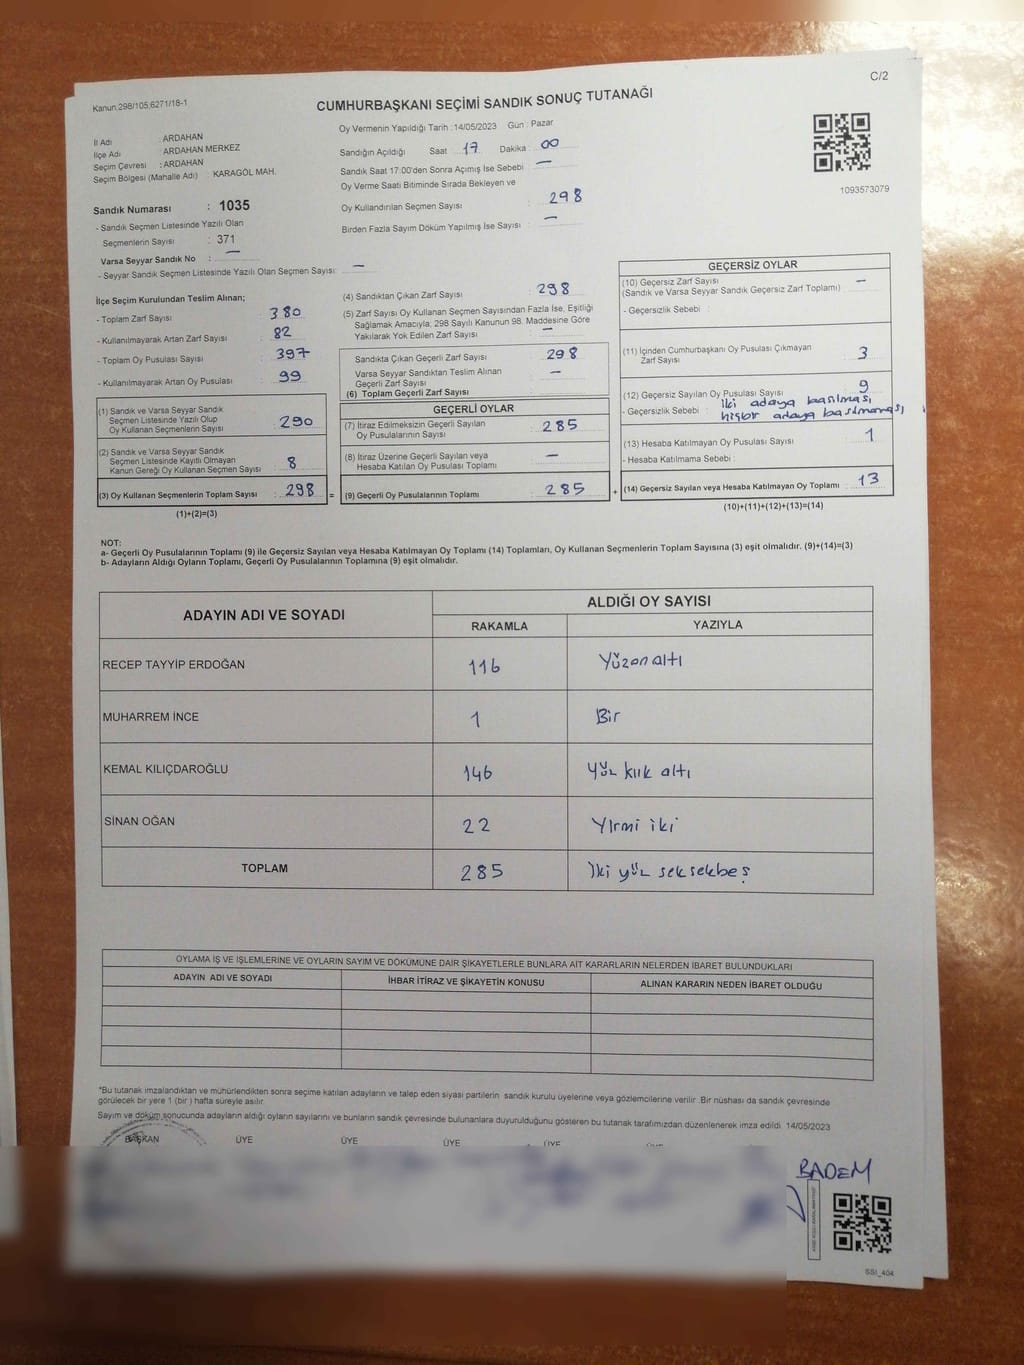 C/2
Kanun.298/105,6271/18-1
CUMHURBAŞKANI SEÇİMİ SANDIK SONUÇ TUTANAĞI
İl Adı : ARDAHAN
İlçe Adı : ARDAHAN MERKEZ
Seçim Çevresi : ARDAHAN
Seçim Bölgesi (Mahalle Adı) : KARAGÖL MAH.
Sandık Numarası : 1035
- Sandık Seçmen Listesinde Yazılı Olan
Seçmenlerin Sayısı : 371
Varsa Seyyar Sandık No : —
- Seyyar Sandık Seçmen Listesinde Yazılı Olan Seçmen Sayısı: —
Oy Vermenin Yapıldığı Tarih :14/05/2023 Gün : Pazar
Sandığın Açıldığı Saat 17 Dakika 00
Sandık Saat 17:00'den Sonra Açımış İse Sebebi : —
Oy Verme Saati Bitiminde Sırada Bekleyen ve
Oy Kullandırılan Seçmen Sayısı : 298
Birden Fazla Sayım Döküm Yapılmış İse Sayısı : —
1093573079
İlçe Seçim Kurulundan Teslim Alınan;
- Toplam Zarf Sayısı : 380
- Kullanılmayarak Artan Zarf Sayısı : 82
- Toplam Oy Pusulası Sayısı : 397
- Kullanılmayarak Artan Oy Pusulası : 99
(1) Sandık ve Varsa Seyyar Sandık
Seçmen Listesinde Yazılı Olup
Oy Kullanan Seçmenlerin Sayısı : 290
(2) Sandık ve Varsa Seyyar Sandık
Seçmen Listesinde Kayıtlı Olmayan
Kanun Gereği Oy Kullanan Seçmen Sayısı : 8
(3) Oy Kullanan Seçmenlerin Toplam Sayısı : 298 =
(1)+(2)=(3)
(4) Sandıktan Çıkan Zarf Sayısı : 298
(5) Zarf Sayısı Oy Kullanan Seçmen Sayısından Fazla İse, Eşitliği
Sağlamak Amacıyla; 298 Sayılı Kanunun 98. Maddesine Göre
Yakılarak Yok Edilen Zarf Sayısı : —
Sandıkta Çıkan Geçerli Zarf Sayısı : 298
Varsa Seyyar Sandıktan Teslim Alınan
Geçerli Zarf Sayısı : —
(6) Toplam Geçerli Zarf Sayısı
GEÇERLİ OYLAR
(7) İtiraz Edilmeksizin Geçerli Sayılan
Oy Pusulalarının Sayısı : 285
(8) İtiraz Üzerine Geçerli Sayılan veya
Hesaba Katılan Oy Pusulası Toplamı : —
(9) Geçerli Oy Pusulalarının Toplamı : 285 +
GEÇERSİZ OYLAR
(10) Geçersiz Zarf Sayısı : —
(Sandık ve Varsa Seyyar Sandık Geçersiz Zarf Toplamı)
- Geçersizlik Sebebi :
(11) İçinden Cumhurbaşkanı Oy Pusulası Çıkmayan
Zarf Sayısı : 3
(12) Geçersiz Sayılan Oy Pusulası Sayısı : 9
- Geçersizlik Sebebi : İki adaya basılması
hiçbir adaya basılmaması
(13) Hesaba Katılmayan Oy Pusulası Sayısı : 1
- Hesaba Katılmama Sebebi :
(14) Geçersiz Sayılan veya Hesaba Katılmayan Oy Toplamı : 13
(10)+(11)+(12)+(13)=(14)
NOT:
a- Geçerli Oy Pusulalarının Toplamı (9) ile Geçersiz Sayılan veya Hesaba Katılmayan Oy Toplamı (14) Toplamları, Oy Kullanan Seçmenlerin Toplam Sayısına (3) eşit olmalıdır. (9)+(14)=(3)
b- Adayların Aldığı Oyların Toplamı, Geçerli Oy Pusulalarının Toplamına (9) eşit olmalıdır.
ADAYIN ADI VE SOYADI ALDIĞI OY SAYISI
RAKAMLA YAZIYLA
RECEP TAYYİP ERDOĞAN 116 Yüzonaltı
MUHARREM İNCE 1 Bir
KEMAL KILIÇDAROĞLU 146 Yüz kırk altı
SİNAN OĞAN 22 Yirmi iki
TOPLAM 285 İki yüz seksekbeş
OYLAMA İŞ VE İŞLEMLERİNE VE OYLARIN SAYIM VE DÖKÜMÜNE DAİR ŞİKAYETLERLE BUNLARA AİT KARARLARIN NELERDEN İBARET BULUNDUKLARI
ADAYIN ADI VE SOYADI İHBAR İTİRAZ VE ŞİKAYETİN KONUSU ALINAN KARARIN NEDEN İBARET OLDUĞU
*Bu tutanak imzalandıktan ve mühürlendikten sonra seçime katılan adayların ve talep eden siyasi partilerin sandık kurulu üyelerine veya gözlemcilerine verilir. Bir nüshası da sandık çevresinde
görülecek bir yere 1 (bir ) hafta süreyle asılır.
Sayım ve döküm sonucunda adayların aldığı oyların sayılarını ve bunların sandık çevresinde bulunanlara duyurulduğunu gösteren bu tutanak tarafımızdan düzenlenerek imza edildi. 14/05/2023
BAŞKAN ÜYE ÜYE ÜYE ÜYE
BADEM
SSİ_404